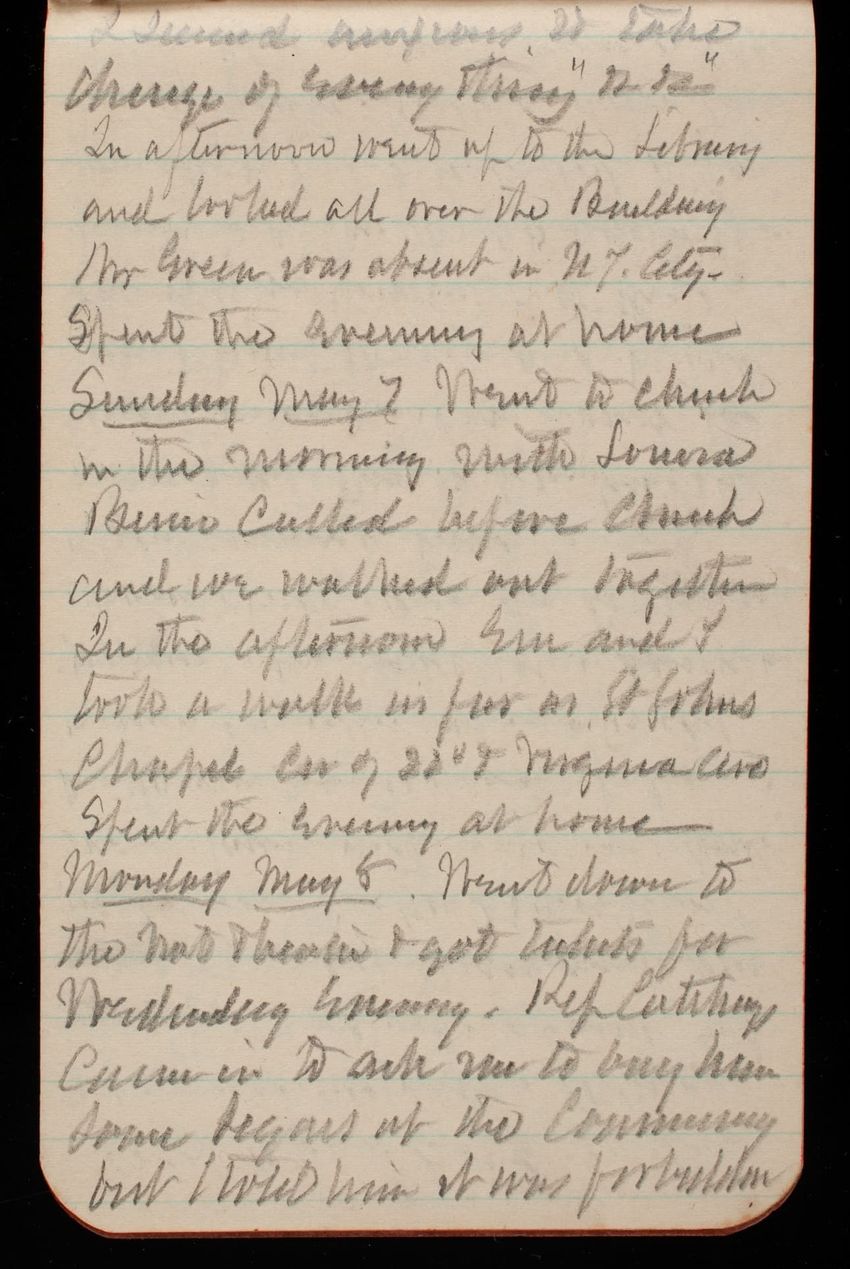 I seemed anxious to take
Charge of Everything "
In afternoon went up to the Library
and looked all over the Building
Mr Green was absent in N.Y. City-
Spent the evening at home
Sunday May 7 Went to church
in the morning with Louisa
Called before Church
and we walked out together
In the afternoon Em and I
took a walk as far as St Johns
Chapel Cor of 22nd & Virginia Ave
Spent the evening at home
Monday May 8. Went down to
the Nat Theatre & got tickets for
Wednesday Evening. Rep Cutcheon
Came in to ask me to buy him
some segars at the Commissary
but I told him it was forbidden